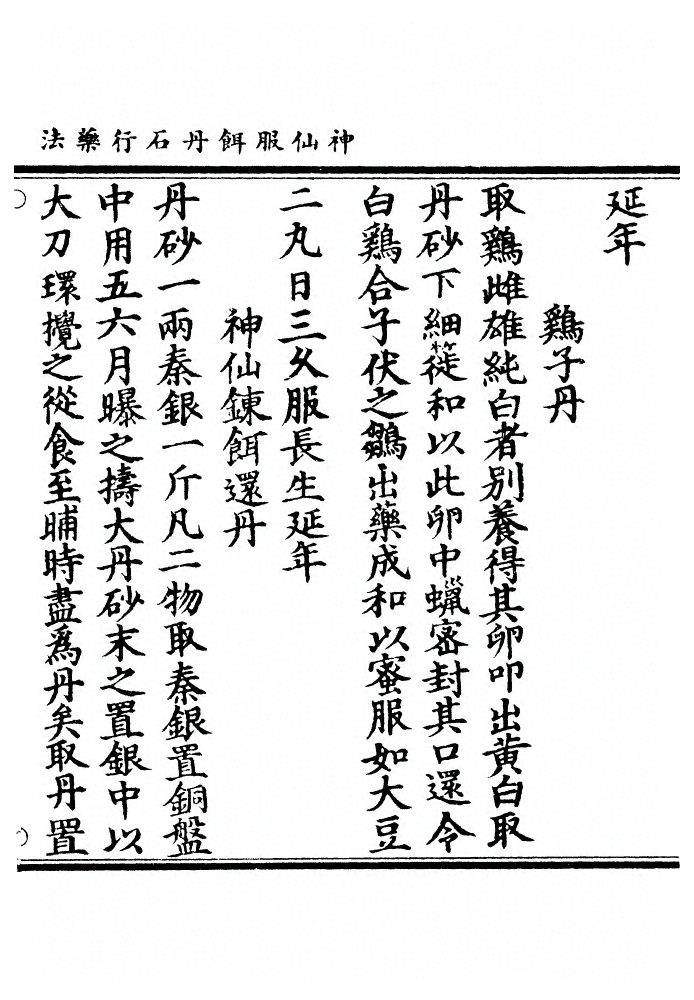 神仙服餌丹石行藥法
延年
鷄子丹
取鷄雌雄純白者別養得其卵叩出黃白取
丹砂下細簁和以此卵中蠟密封其口還令
白鷄合子伏之鶵出藥成和以蜜服如大豆
二丸日三久服長生延年
神仙鍊餌還丹
丹砂一兩秦銀一斤凡二物取秦銀置銅盤
中用五六月曝之擣大丹砂末之置銀中以
大刀環攪之從食至晡時盡爲丹矣取丹置